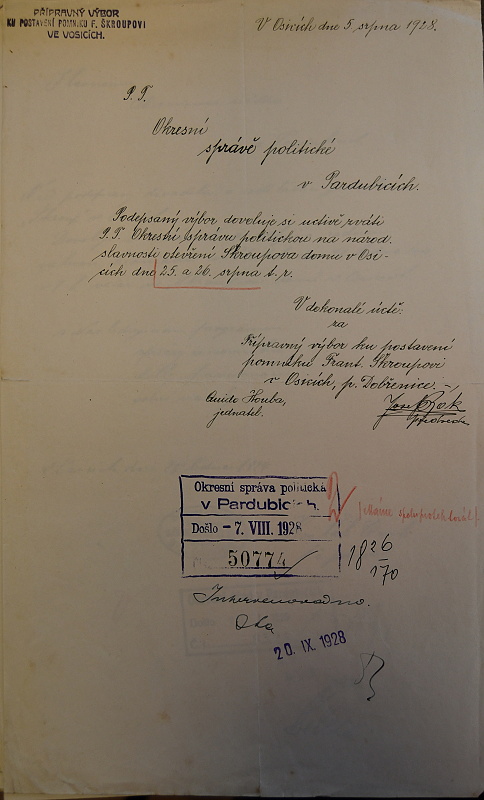 PŘÍPRAVNÝ VÝBOR
KU POSTAVENÍ POMNÍKU F. ŠKROUPOVI
VE VOSICÍCH.
V Osicích dne 5. srpna 1928.
P. T.
Okresní
správě politické
v Pardubicích.
Podepsaný výbor dovoluje si uctivě zváti
P. T. Okresní správu politickou na národ.
slavnosti otevření Škroupova domu v Osi-
cích dne 25. a 26. srpna t. r.
V dokonalé úctě:
za
Přípravný výbor ku postavení
pomníku Frant. Škroupovi
v Osicích, p. Dobřenice.
Guido Houba,
jednatel.
Josef
předseda
Okresní správa politická
v Pardubicích.
Došlo - 7. VIII. 1928
50774
1826
170
Intervenováno.
20. IX. 1928